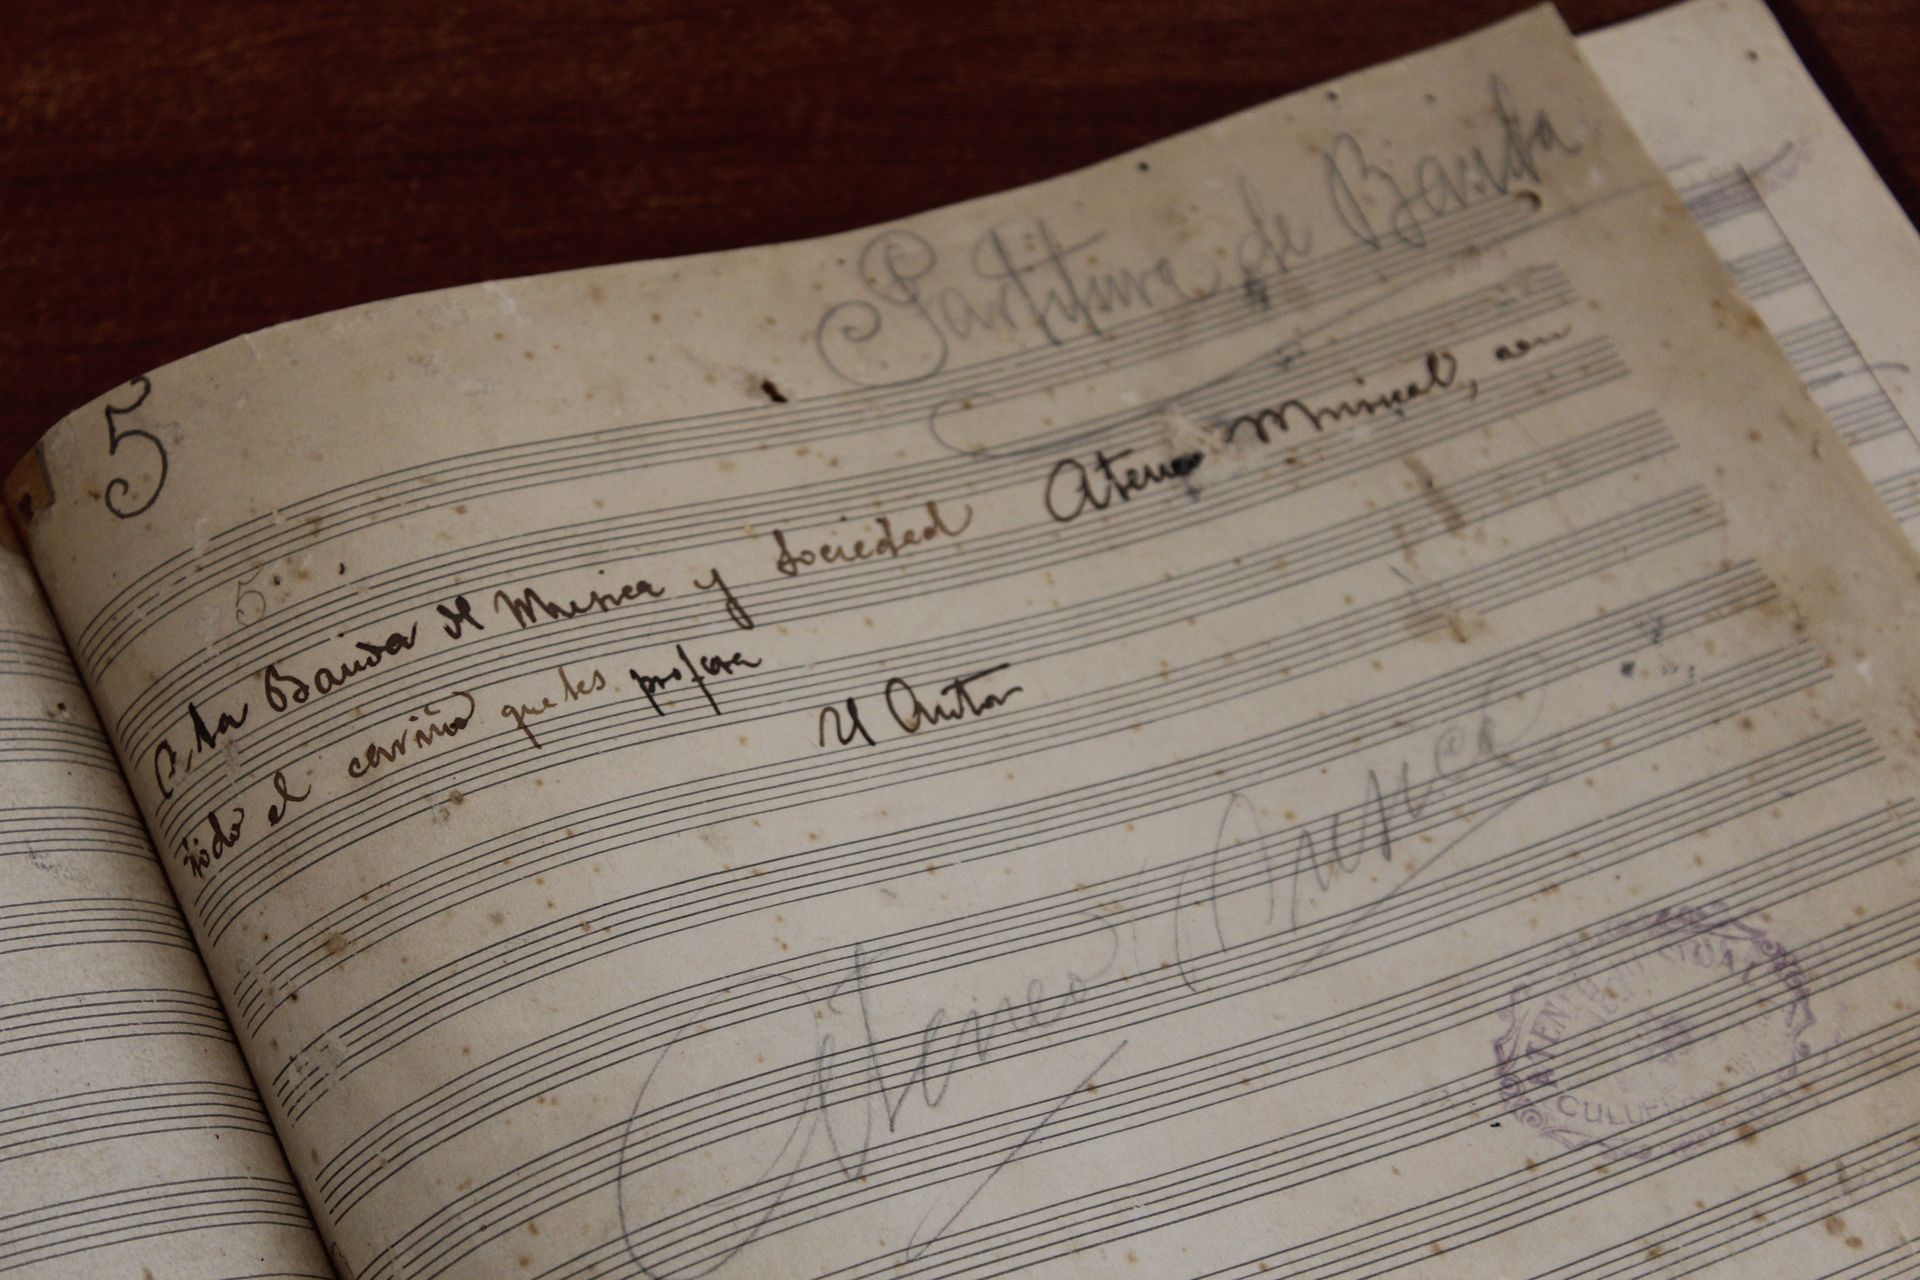 5
Partitura de Banda
5
A la Banda de Musica y Sociedad Ateneo Musical, con
todo el cariño que les profesa
El Autor
Ateneo Musical
ATENEO MUSICAL
CULLERA